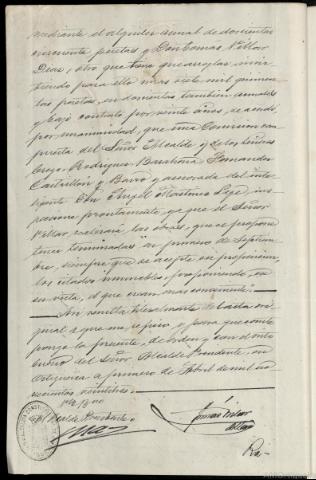 mediante el alquiler anual de doscientas
cincuenta pesetas y Don Tomás Villar
Deas, otro que tiene que arreglar invir
tiendo para ello mas siete mil quinien
tas pesetas, en doscientas, también anuales
y bajo contrato por veinte años, se acordó
por unanimidad, que una Comisión com
puesta del Señor Alcalde y de los Señores
Crego, Rodríguez Barahona, Fernandez
Castrillón y Barro y asesorada del inte
ligente Don Angel Martínez Leje, ins
peccione prontamente, ya que el Señor
Villar, realizaría las obras, que se propone
tener terminadas en primero de Septiem
bre, siempre que se acepte su proposición,
los citados inmuebles, proponiendo, en
su vista, el que crean mas conveniente.
Así resulta literalmente de la acta ori
ginal a que me refiero y para que conste
pongo la presente, de orden y con el visto
bueno del Señor Alcalde Presidente, en
Ortigueira a primero de Abril de mil no
vecientos veintitres.
Vto. Bno
El Alcalde Presidente